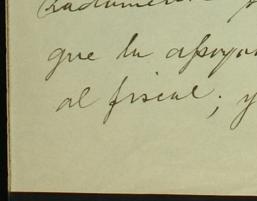 que la apoya
al fiscal; y